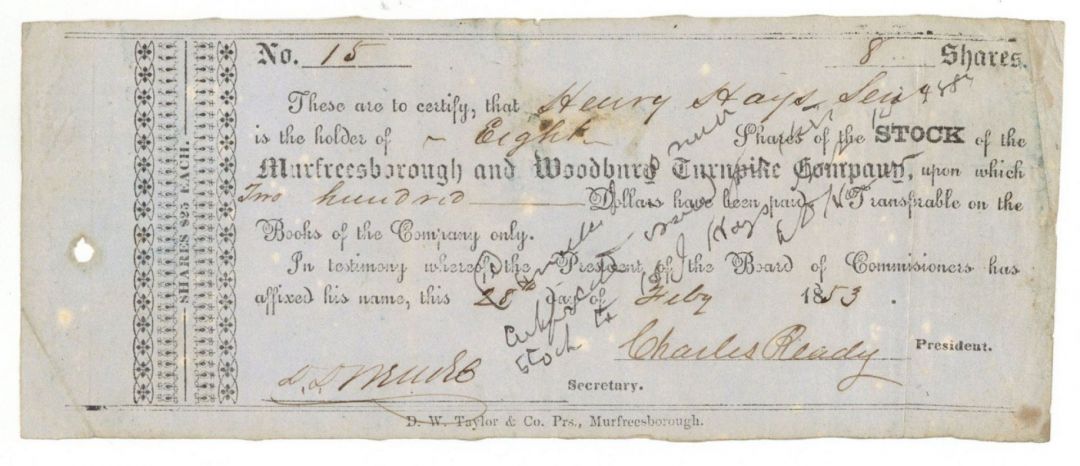 No. 15 8 Shares.
These are to certify, that Henry Hays, Sen
is the holder of Eight Shares of the STOCK of the
Murfreesborough and Woodbury Turnpike Company, upon which
Two hundred Dollars have been paid, Transfrable on the
Books of the Company only.
In testimony whereof the President of the Board of Commisioners has
affixed his name, this 28th day of Feby 1853.
Charles Ready President.
Secretary.
D. W. Taylor & Co. Prs., Murfreesborough.
SHARES $25 EACH.
Stock to